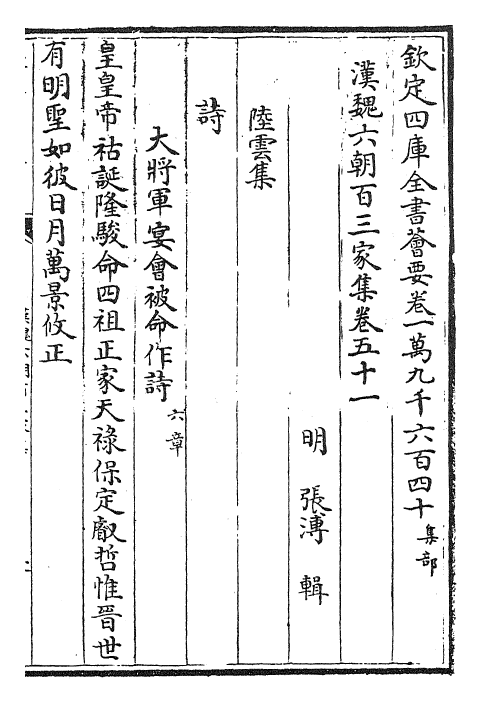 欽定四庫全書薈要卷一萬九千六百四十集部
漢魏六朝百三家集卷五十一
明 張溥 輯
陸雲集
詩
大將軍宴會被命作詩六章
皇皇帝祜誕隆駿命四祖正家天祿保定叡哲惟晉世
有明聖如彼日月萬景攸正